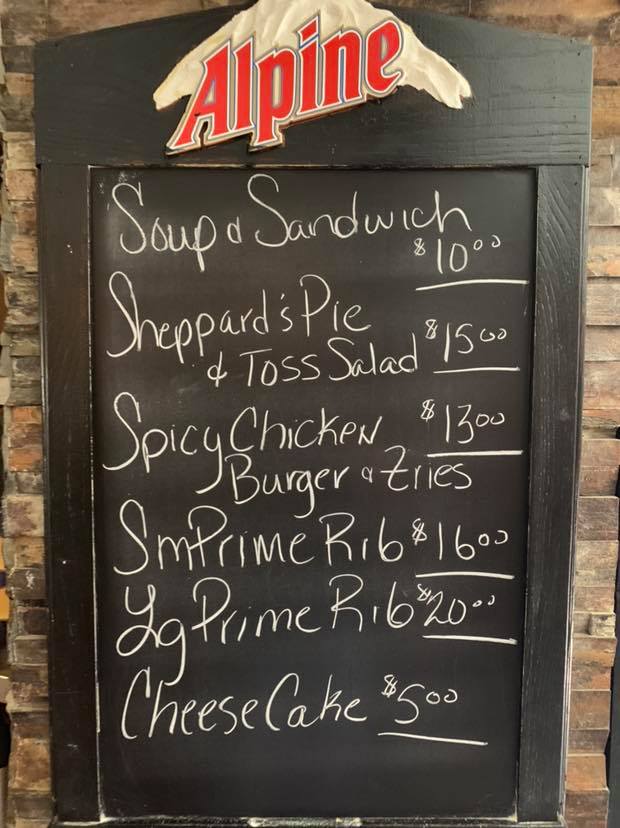 Alpine
Soup & Sandwich
$10.00
Sheppard's Pie
& Toss Salad $15.00
Spicy Chicken $13.00
Burger & Fries
Sm Prime Rib $16.00
Lg Prime Rib $20.00
Cheese Cake $5.00